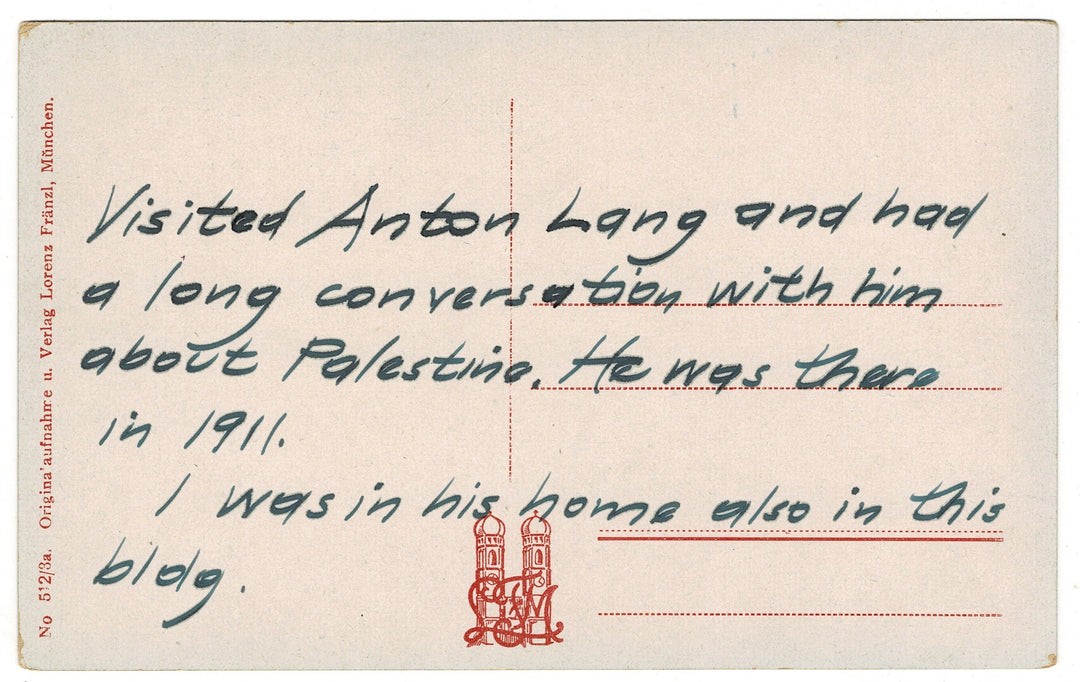 Visited Anton Lang and had
a long conversation with him
about Palestine. He was there
in 1911.
I was in his home also in this
bldg.
No 512/3a. Original aufnahme u. Verlag Lorenz Fränzl, München.
LFM